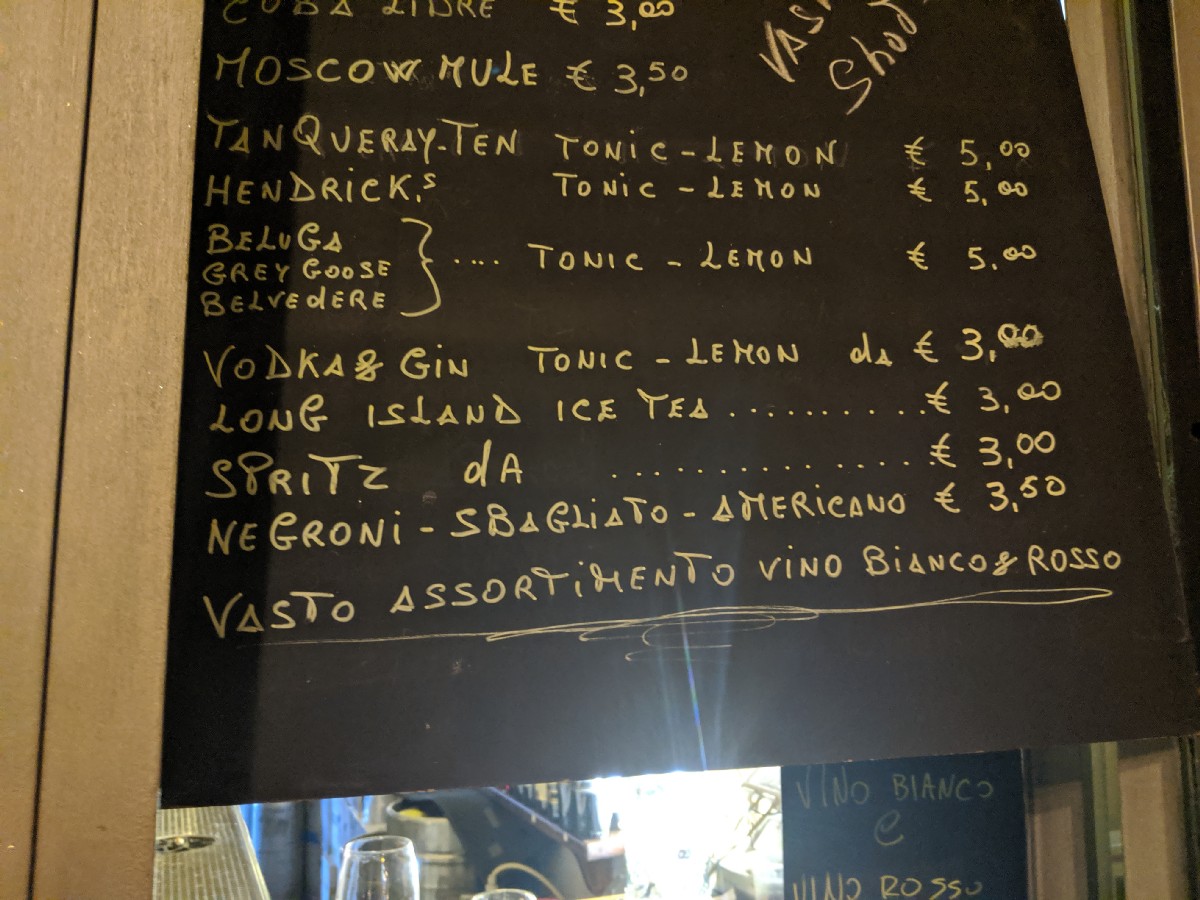 CUBA LIBRE € 3,00
MOSCOW MULE € 3,50
TANQUERAY-TEN TONIC - LEMON € 5,00
HENDRICK,S TONIC - LEMON € 5,00
BELUGA
GREY GOOSE
BELVEDERE
.... TONIC - LEMON € 5,00
VODKA & GIN TONIC - LEMON dA € 3,00
LONG ISLAND ICE TEA .......... € 3,00
SPRITZ dA ............... € 3,00
NEGRONI - SBAGLIATO - AMERICANO € 3,50
VASTO ASSORTIMENTO VINO BIANCO & ROSSO
VINO BIANCO
e
VINO ROSSO